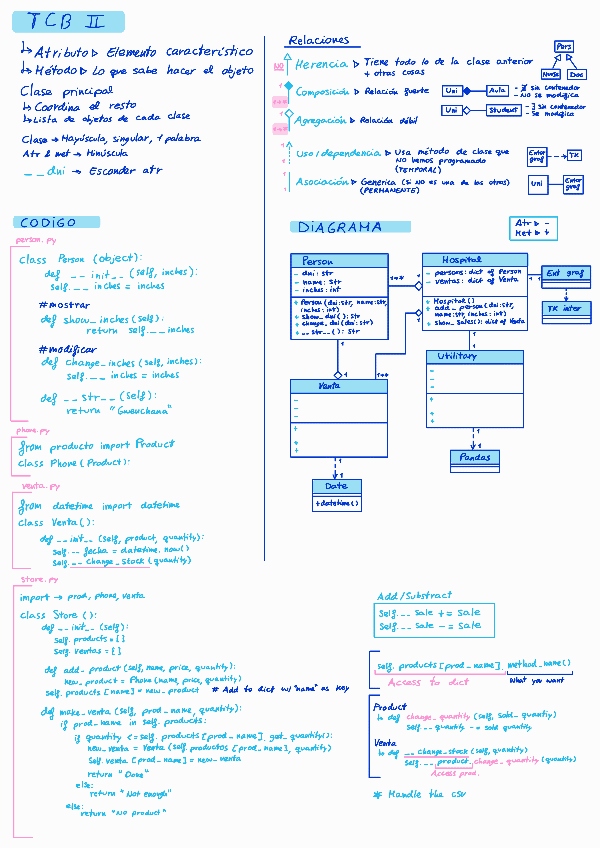 TCB II
↳ Atributo ▷ Elemento característico
↳ Método ▷ Lo que sabe hacer el objeto
Clase principal
↳ Coordina el resto
↳ Lista de objetos de cada clase
Clase → Mayúscula, singular, 1 palabra
Atr & met → Minúscula
__dni → Esconder atr
Relaciones
NO
Herencia ▷ Tiene todo lo de la clase anterior
+ otras cosas
Pers
Nurse
Doc
Composición ▷ Relación fuerte
Uni
Aula
- ∄ sin contenedor
- NO se modifica
Agregación ▷ Relación débil
Uni
Student
- ∃ sin contenedor
- Se modifica
Uso/dependencia ▷ Usa método de clase que
NO hemos programado
(TEMPORAL)
Entor
graf
TK
Asociación ▷ Genérica (si NO es una de las otras)
(PERMANENTE)
Uni
Entor
graf
CODIGO
person.py
class Person (object):
def __init__ (self, inches):
self.__inches = inches
#mostrar
def show_inches (self):
return self.__inches
#modificar
def change_inches (self, inches):
self.__inches = inches
def __str__ (self):
return "Gwenchana"
phone.py
from producto import Product
class Phone (Product):
venta.py
from datetime import datetime
class Venta ():
def __init__ (self, product, quantity):
self.__fecha = datetime.now()
self.__change_stock (quantity)
store.py
import → prod, phone, venta
class Store ():
def __init__ (self):
self.products = {}
self.ventas = {}
def add_product (self, name, price, quantity):
new_product = Phone (name, price, quantity)
self.products [name] = new_product # Add to dict w/ "name" as key
def make_venta (self, prod_name, quantity):
if prod_name in self.products:
if quantity <= self.products [prod_name].get_quantity():
new_venta = Venta (self.productos [prod_name], quantity)
self.venta [prod_name] = new_venta
return "Done"
else:
return "Not enough"
else:
return "No product"
DIAGRAMA
Atr ▷ -
Met ▷ +
Person
- dni: str
- name: str
- inches: int
+ Person (dni:str, name:str,
inches: int)
+ show_dni (): str
+ change_dni (dni:str)
+ __str__ (): str
1..*
1
Hospital
- persons: dict of Person
- ventas: dict of Venta
+ Hospital ()
+ add_person (dni:str,
name:str, inches: int)
+ show_sales(): dict of Venta
1
1
Ent graf
TK inter
Venta
1..*
Utilitary
Pandas
Date
+ datetime()
Add/Substract
Self.__sale += sale
Self.__sale -= sale
self.products [prod_name].method_name()
Access to dict
What you want
Product
↳ def change_quantity (self, sold_quantity)
self.__quantity -= sold quantity
Venta
↳ def __change_stock (self, quantity)
self.__product.change_quantity (quantity)
Access prod.
* Handle the csv